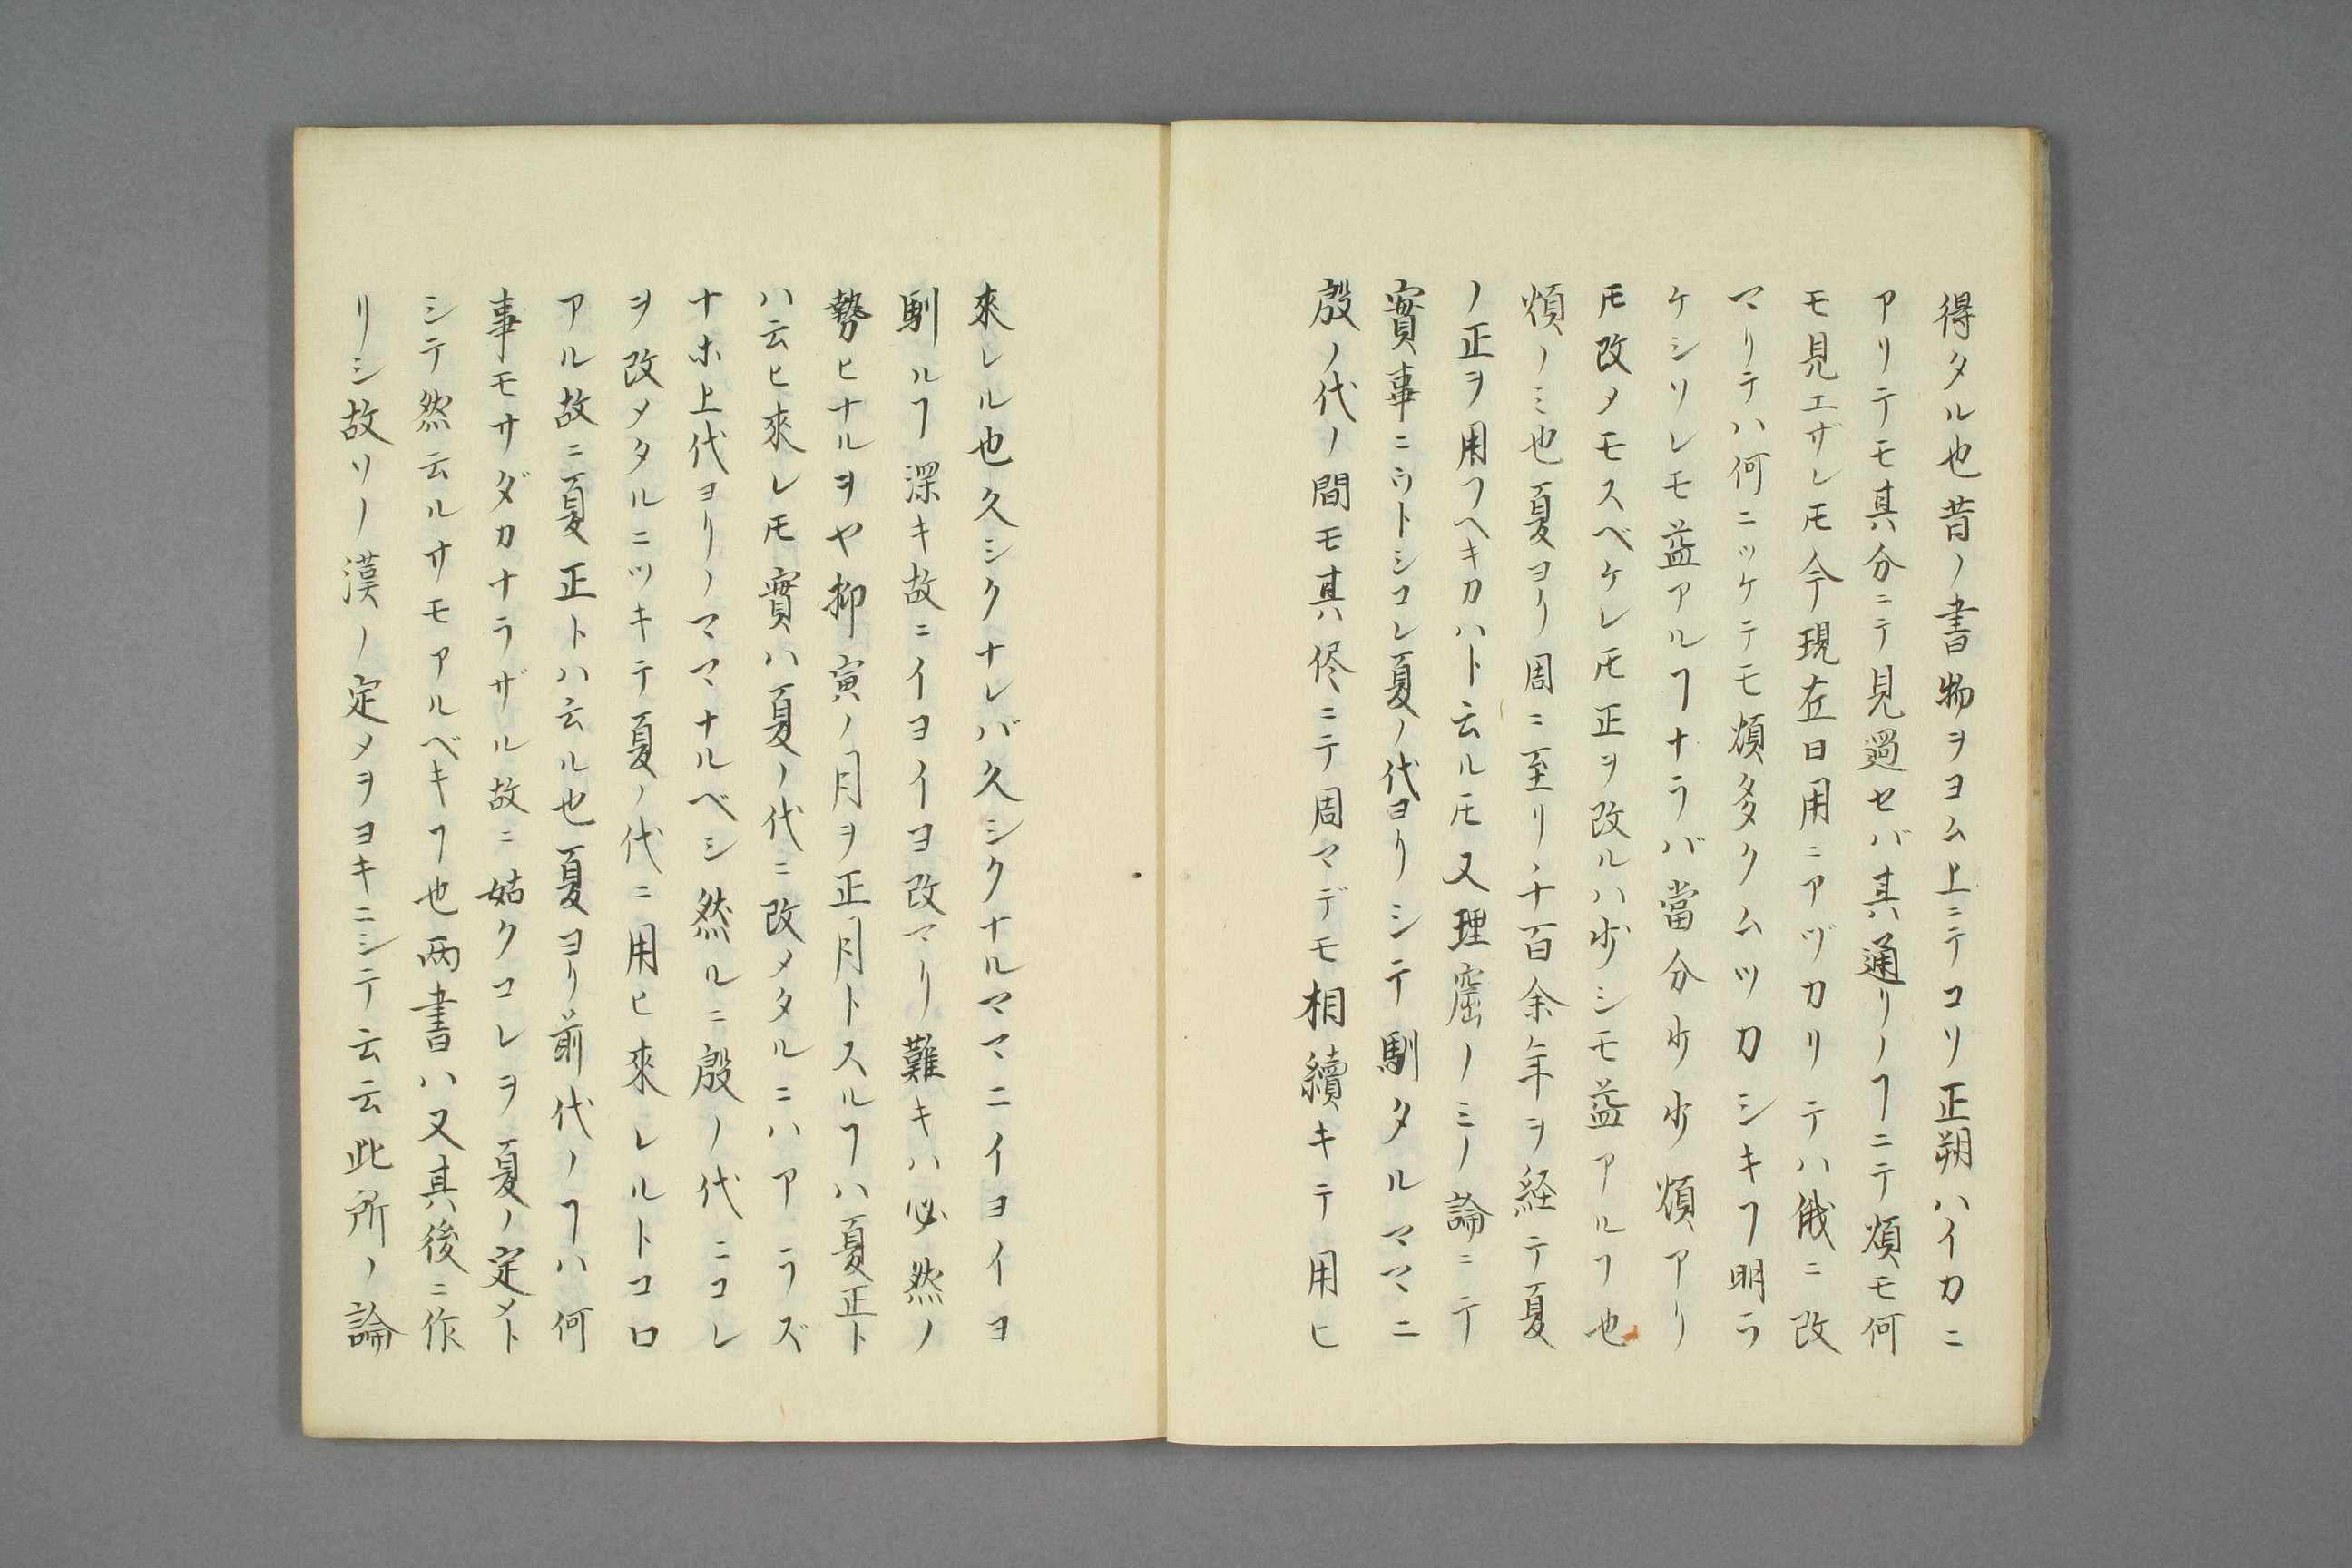 得タル也昔ノ書物ヲヨム上ニテコソ正朔ハイカニ
アリテモ其分ニテ見過セバ其通リノヿニテ煩モ何
モ見エザレ𪜈今現在日用ニアヅカリテハ俄ニ改
マリテハ何ニツケテモ煩多クムツカシキヿ明ラ
ケシソレモ益アルヿナラバ當分少少煩アリ
𪜈改メモスベケレ𪜈正ヲ改ルハ少シモ益アルヿ也
煩ノミ也夏ヨリ周ニ至リ千百余年ヲ経テ夏
ノ正ヲ用フヘキカハト云ル𪜈又理窟ノミノ論ニテ
實事ニウトシコレ夏ノ代ヨリシテ馴タルママニ
殷ノ代ノ間モ其侭ニテ周マデモ相續キテ用ヒ
來レル也久シクナレバ久シクナルママニイヨイヨ
馴ルヿ深キ故ニイヨイヨ改マリ難キハ必然ノ
勢ヒナルヲヤ抑寅ノ月ヲ正月トスルヿハ夏正ト
ハ云ヒ來レ𪜈實ハ夏ノ代ニ改メタルニハアラズ
ナホ上代ヨリノママナルベシ然ルニ殷ノ代ニコレ
ヲ改メタルニツキテ夏ノ代ニ用ヒ來レルトコロ
アル故ニ夏正トハ云ル也夏ヨリ前代ノヿハ何
事モサダカナラザル故ニ姑クコレヲ夏ノ定メト
シテ然云ルサモアルベキヿ也両書ハ又其後ニ作
リシ故ソノ漢ノ定メヲヨキニシテ云云此所ノ論